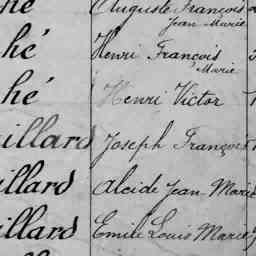 hé Auguste François
Jean Marie
hé Henri François
Marie
hé Henri Victor
illard Joseph François
illard Alcide Jean Marie
illard Emile Louis Marie